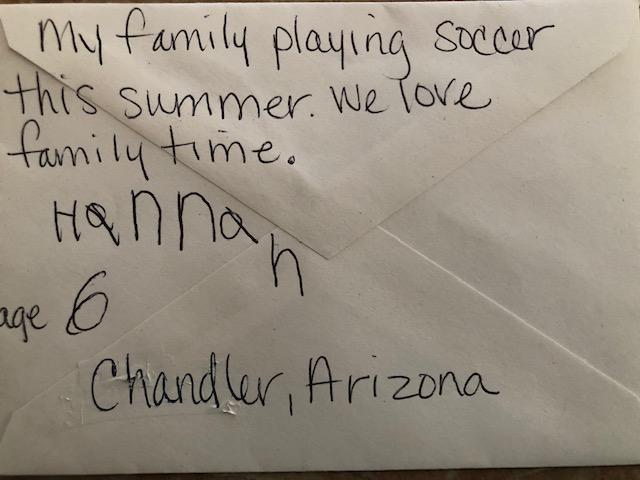 My family playing soccer
this summer. We love
family time.
Hannah
age 6
Chandler, Arizona